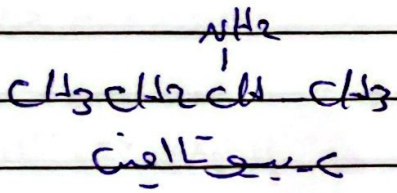 NH2
|
CH3 CH2 CH CH3
بيوتاامين